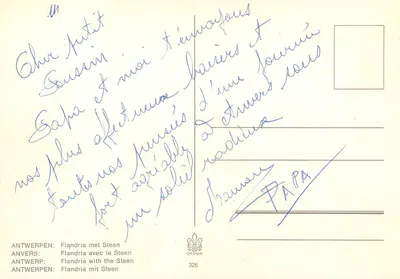 Cher petit
Poussin
Papa et moi t'envoyons
nos plus affectueux baisers et
toutes nos pensées d'une journée
fort agréable à Anvers sous
un soleil radieux
d'amour
PAPA
ANTWERPEN: Flandria met Steen
ANVERS: Flandria avec le Steen
ANTWERP: Flandria with the Steen
ANTWERPEN: Flandria mit Steen
326